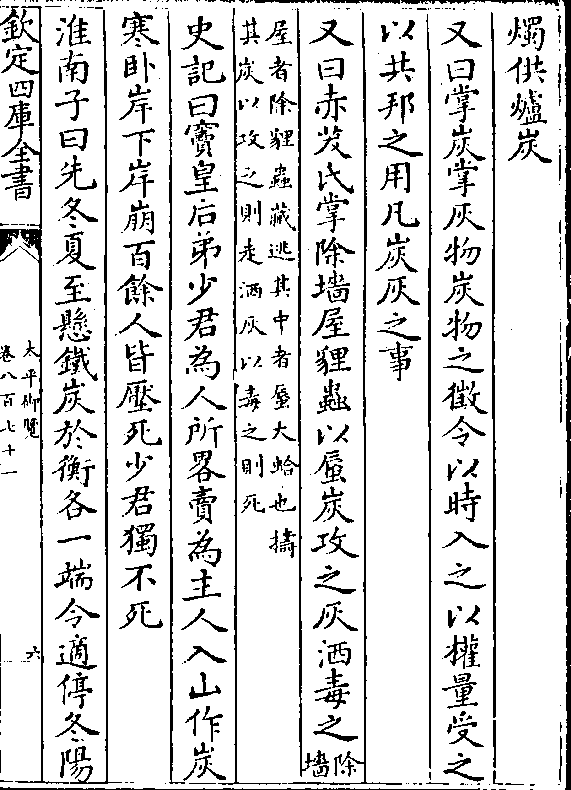 燭供爐炭
又曰掌炭掌灰物炭物之徵令以時入之以權量受之
以共邦之用凡炭灰之事
又曰赤犮氏掌除墻屋貍蟲以蜃炭攻之灰洒毒之除墻
屋者除貍蟲藏逃其中者蜃大蛤也擣
其炭以攻之則走洒灰以毒之則死
史記曰竇皇后弟少君為人所畧賣為主人入山作炭
寒卧岸下岸崩百餘人皆壓死少君獨不死
淮南子曰先冬夏至懸鐵炭於衡各一端令適停冬陽
欽定四庫全書
太平御覽
卷八百七十一
六